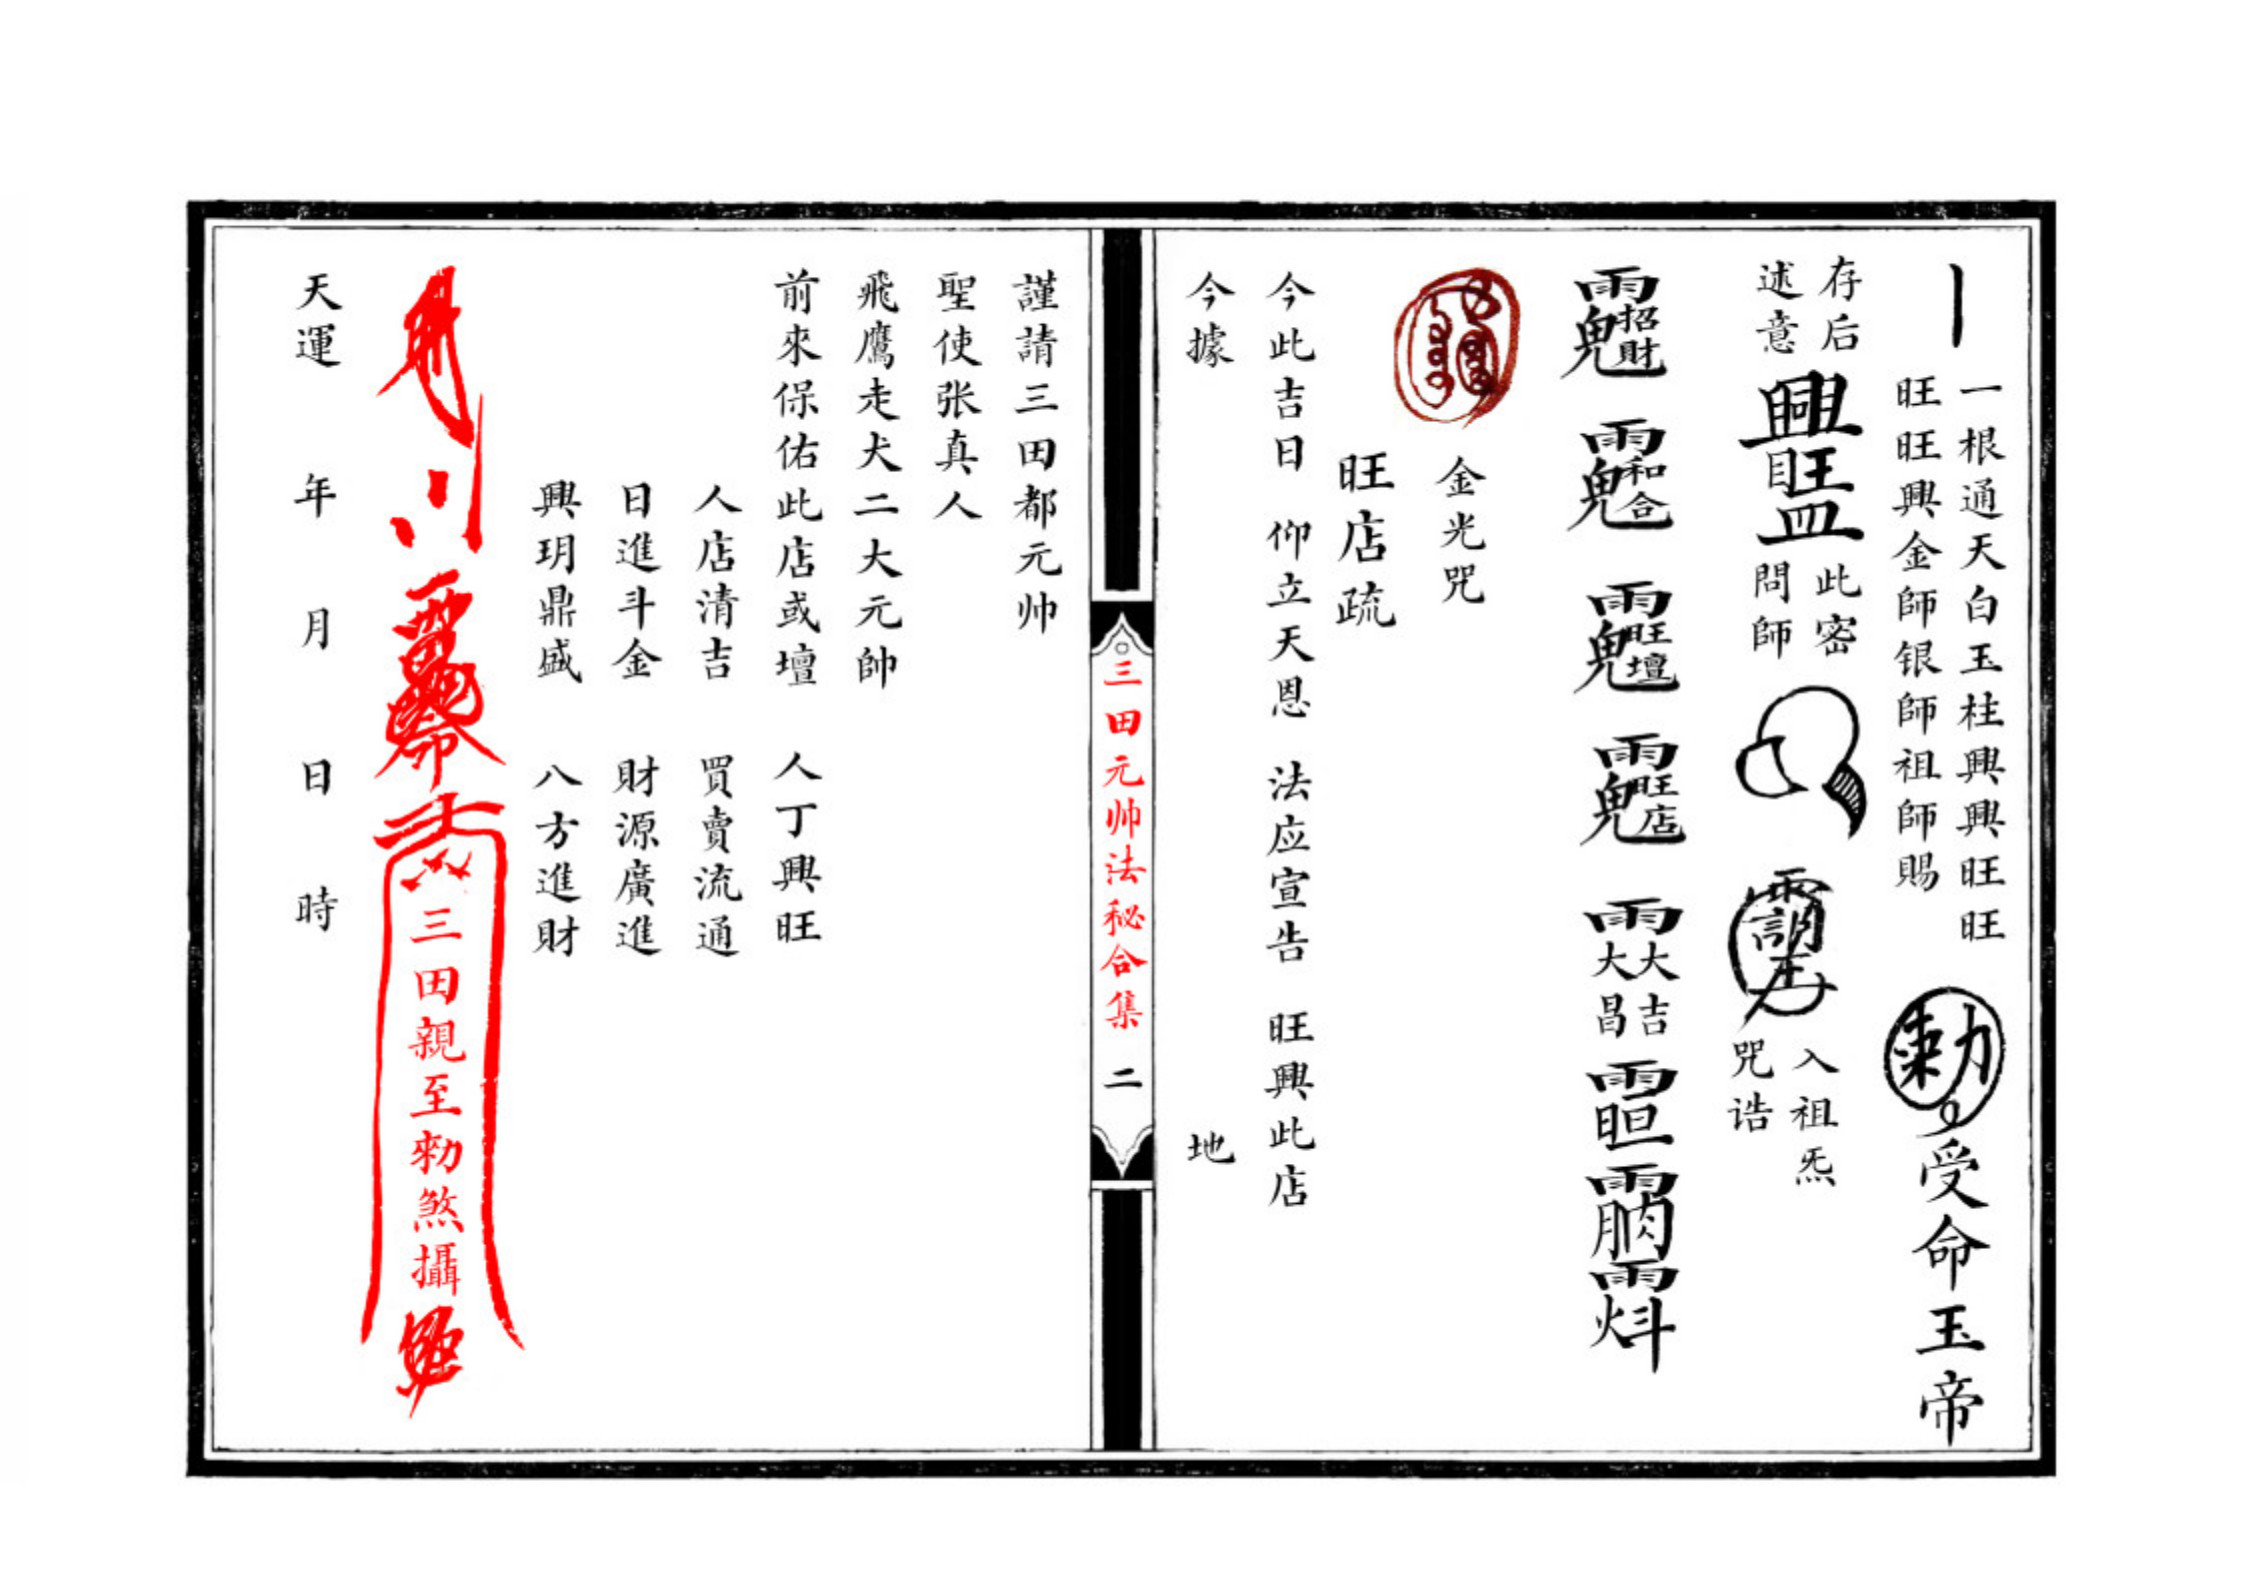 一根通天白玉柱興興旺旺
旺旺興金師银師祖師賜
勅
受命玉帝
存后
述意
此密
問師
入祖炁
咒诰
招財
和合
旺壇
旺店
大吉
大昌
金光咒
旺店疏
今此吉日 仰立天恩 法应宣告 旺興此店
今據 地
三田元帅法秘合集 二
謹請三田都元帅
聖使张真人
飛鷹走犬二大元帥
前來保佑此店或壇 人丁興旺
人店清吉 買賣流通
日進斗金 財源廣進
興玥鼎盛 八方進財
三田親至勑煞攝
天運 年 月 日 時